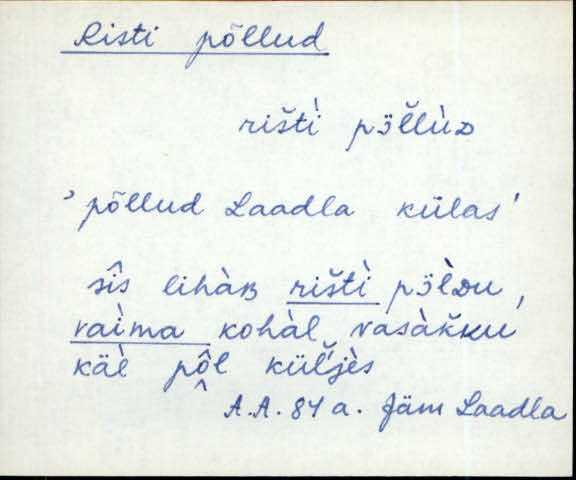 Risti põllud
rišti̇̀ pɜ̈̆llùᴅ
'põllud Laadla külas'
sîs lihàʙ rištì pɜ̈lᴅu,
vaìma kohàl, vasàk̆ku
käè pôl küĺjès
A.A. 84 a. Jäm Laadla